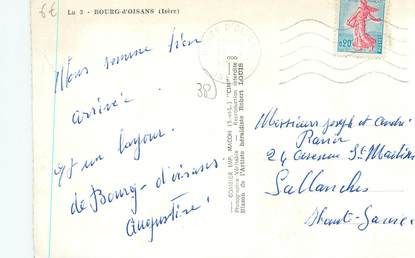 6€
La 3 - BOURG-d'OISANS (Isère)
0,20
38)
Nous somme bien
arrivée.
et un bayour.
de Bourg-d'oisans.
Augustine.
COMBIER IMP. MACON (S.-et-L.) "CIM"
Photographie Véritable - Reproduction interdite
Blason de l'Artiste héraldiste Robert LOUIS
Messieurs joseph et André
24 avenue St Martin
Sallanches
Haute-Savoie